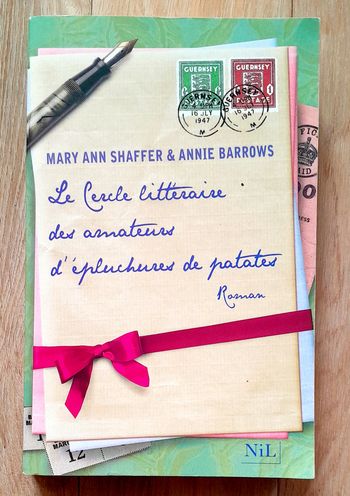 GUERNSEY
GUERNSEY
POSTAGE
GUERNSEY
16 JLY
1947
M
GUERNSEY
1947
M
MARY ANN SHAFFER & ANNIE BARROWS
Le Cercle littéraire
des amateurs
d'épluchures de patates
Roman
12
NiL